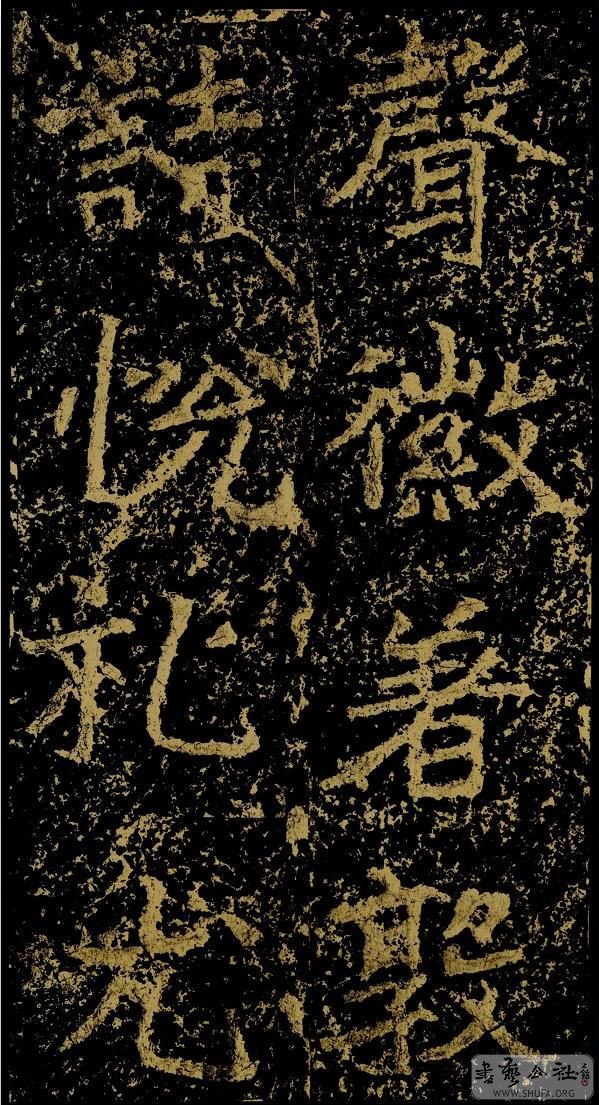 聲徽著敦
詩悅礼尤
書藝公社
WWW.SHUFA.ORG